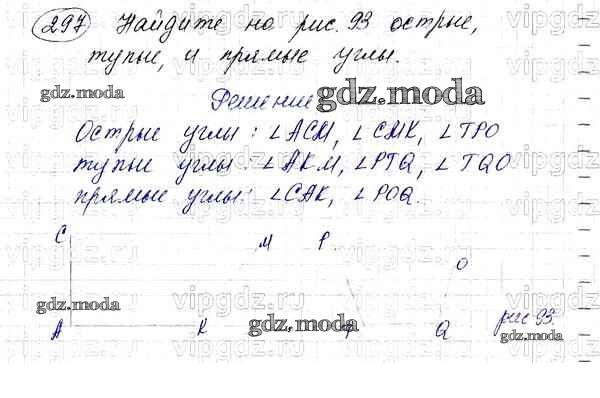 297 Найдите на рис. 93 острые,
тупые, и прямые углы.
gdz.moda
Решение
gdz.moda
Острые углы: ∠ACM, ∠CMK, ∠TPO
тупые углы: ∠AKM, ∠PTQ, ∠TQO
прямые углы: ∠CAK, ∠POQ.
C
M P
O
gdz.moda
gdz.moda
A K Q
рис 93.
gdz.moda
vipgdz.ru